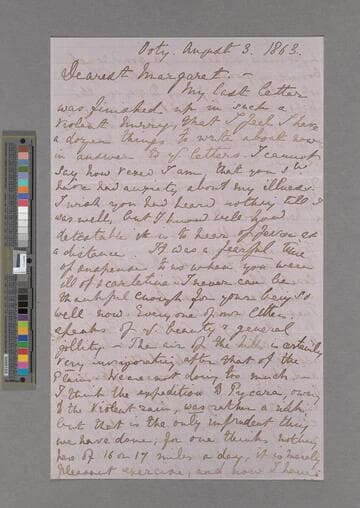 Ooty. August 3. 1863.
Dearest Margaret. –
My last letter
was finished up in such a
violent hurry, that I feel I have
a dozen things to write about now
in answer to yr letters. I cannot
say how vexed I am, that you shd
have had anxiety about my illness.
I wish you had heard nothing till I
was well, but I know well how
detestable it is to hear of fever at
a distance. It was a fearful time
of suspense to us when you were
ill of scarlatina. I never can be
thankful enough for your being so
well now. Every one of our letters
speaks of yr beauty & general
jollity – The air of the hills is certainly
very invigorating after that of the
Plain. We are not doing too much –
I think the expedition to Pycara, owing
to the violent rain, was rather a risk,
but that is the only imprudent thing
we have done; for one thinks nothing
here of 16 or 17 miles a day, it is merely
pleasant exercise, and now I have